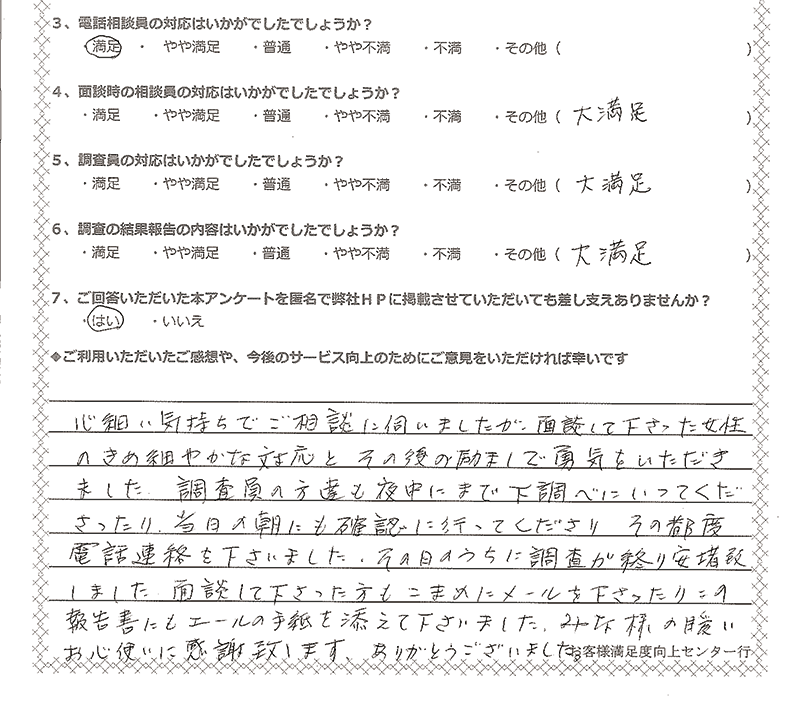 3、電話相談員の対応はいかがでしたでしょうか？
・満足 ・やや満足 ・普通 ・やや不満 ・不満 ・その他（ ）
4、面談時の相談員の対応はいかがでしたでしょうか？
・満足 ・やや満足 ・普通 ・やや不満 ・不満 ・その他（ 大満足 ）
5、調査員の対応はいかがでしたでしょうか？
・満足 ・やや満足 ・普通 ・やや不満 ・不満 ・その他（ 大満足 ）
6、調査の結果報告の内容はいかがでしたでしょうか？
・満足 ・やや満足 ・普通 ・やや不満 ・不満 ・その他（ 大満足 ）
7、ご回答いただいた本アンケートを匿名で弊社ＨＰに掲載させていただいても差し支えありませんか？
・はい ・いいえ
◆ご利用いただいたご感想や、今後のサービス向上のためにご意見をいただければ幸いです
心細い気持ちでご相談に伺いましたが、面談して下さった女性
のきめ細やかな対応と その後の励ましで勇気をいただき
ました。調査員の方達も夜中にまで下調べにいってくだ
さったり、当日の朝にも確認に行ってくださり その都度
電話連絡を下さいました。その日のうちに調査が終り安堵致
しました。面談して下さった方もこまめにメールを下さったりこの
報告書にもエールの手紙を添えて下さいました。みな様の暖い
お心使いに感謝致します。ありがとうございました。
お客様満足度向上センター行